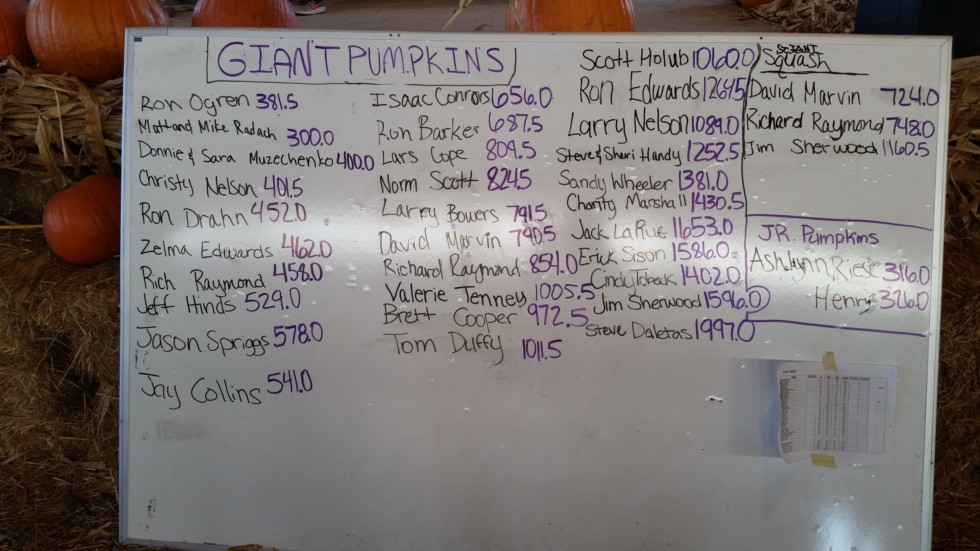 GIANT PUMPKINS
Ron Ogren 381.5
Matt and Mike Radach 300.0
Donnie & Sara Muzechenko 400.0
Christy Nelson 401.5
Ron Drahn 452.0
Zelma Edwards 462.0
Rich Raymond 458.0
Jeff Hinds 529.0
Jason Spriggs 578.0
Jay Collins 541.0
Isaac Connors 656.0
Ron Barker 687.5
Lars Cope 809.5
Norm Scott 824.5
Larry Bowers 791.5
David Marvin 740.5
Richard Raymond 854.0
Valerie Tenney 1005.5
Brett Cooper 972.5
Tom Duffy 1011.5
Scott Holub 1060.0
Ron Edwards 1264.5
Larry Nelson 1089.0
Steve & Sheri Handy 1252.5
Sandy Wheeler 1381.0
Charity Marshall 1430.5
Jack LaRue 1653.0
Erick Sison 1586.0
Cindy Tobeck 1402.0
Jim Sherwood 1596.0
Steve Daletas 1997.0
GIANT
Squash
David Marvin 724.0
Richard Raymond 748.0
Jim Sherwood 1160.5
J.R. Pumpkins
Ashlynn Riese 316.0
Henry 326.0